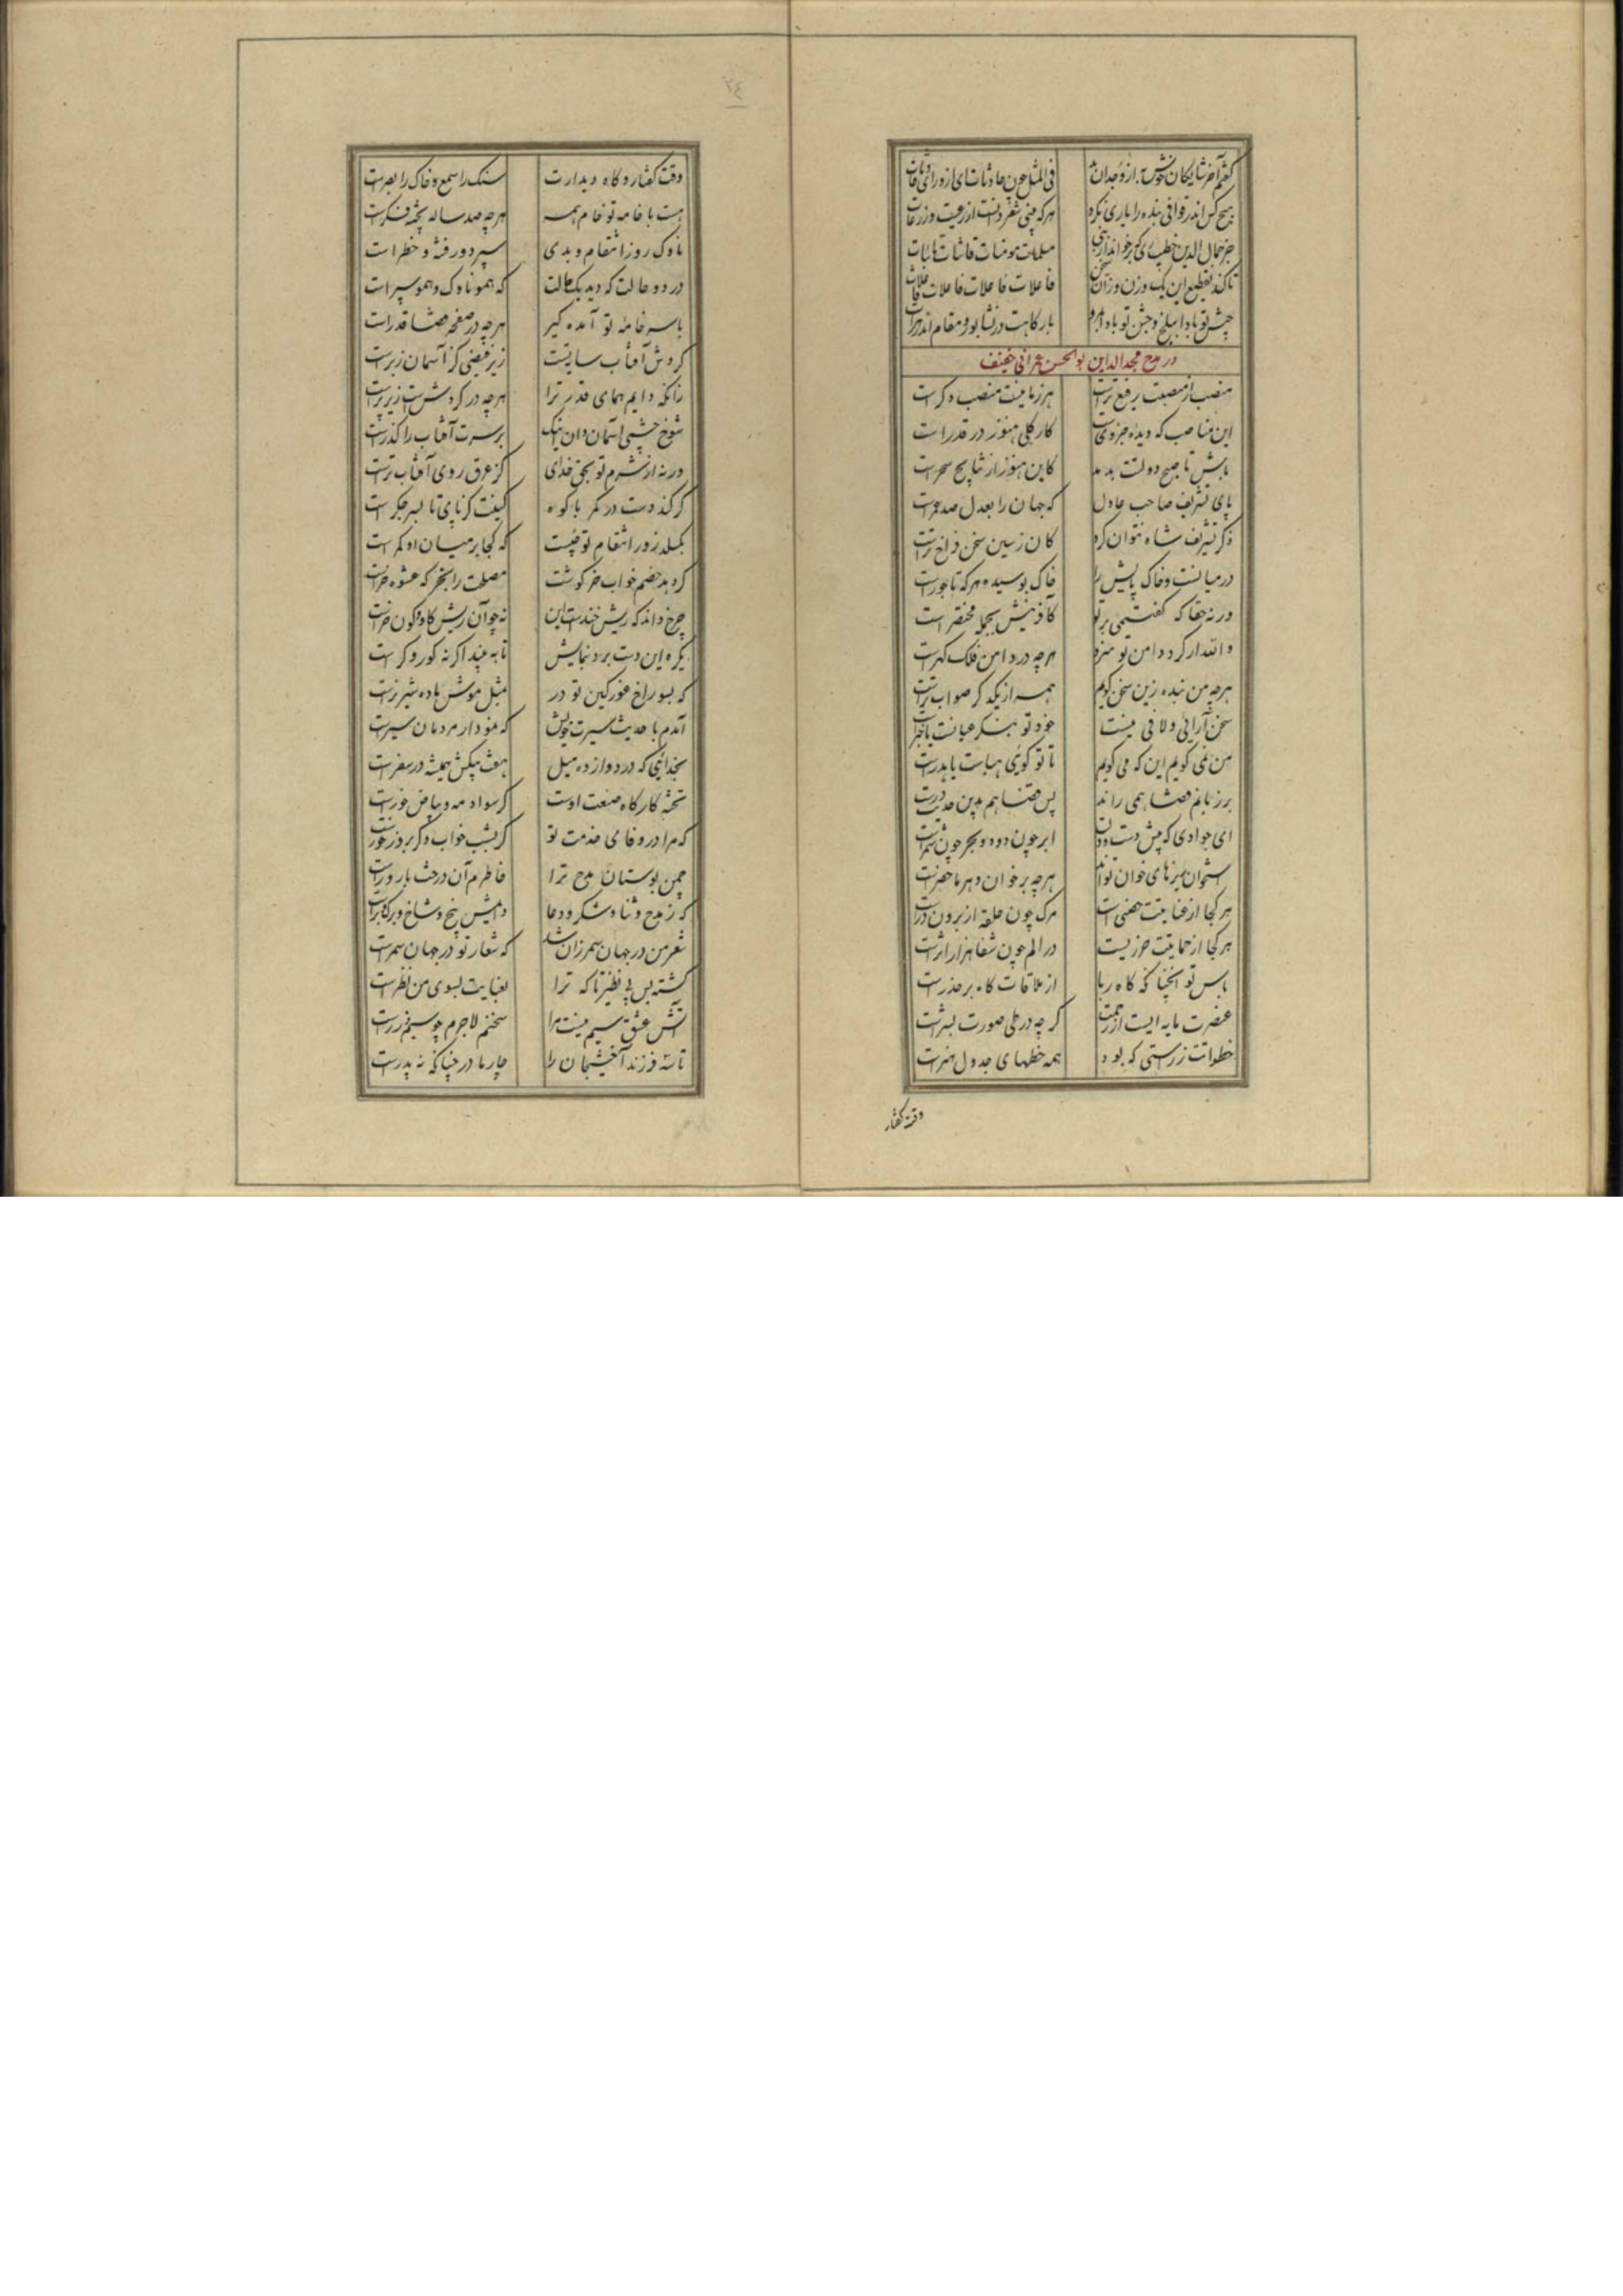 گفتم آخر شایکان خوش به از وجدان بد
فی المثل چون حادثات ای از ورای حادثات
هیچ کس اندر قوافی بنده را یاری نکرد
هرکه بیتی شعر دانست از رعیت وز رعات
جز جمال الدین خطیب ری که برخواند از نبی
مسلمات مومنات قانتات تائبات
تا کند تقطیع این یک وزن وزان سخن
فاعلات فاعلات فاعلات فاعلات
جیش تو بادا ببلخ و جشن تو بادا بمرو
بارگاهت در نشابور و مقام اندر هرات
در مدح مجدالدین بوالحسن عمرانی خفیف
منصب از منصبت رفیع ترست
هر زمانیت منصب دگرست
این مناصب که دیده جزویست
کار کلی هنوز در قدر است
باش تا صبح دولتت بدمد
کاین هنوز از نتایج سحرست
پای تشریف صاحب عادل
که جهان را بعدل صد عمرست
ذکر تشریف شاه نتوان کرد
کان ز سین سخن فراخ ترست
در میانست و خاک پایش را
خاک بوسیده هر که تاجورست
ورنه حقا که گفتمی بر تو
کافرینش بجمله مختصر است
والله ار گرد دامن تو سزد
هرچه در دامن فلک گهرست
هرچه من بنده زین سخن گویم
همه از یکدگر صواب ترست
سخن آرائی و لافی نیست
خود تو بنگر عیانست یا خبرست
من نمی گویم این که می گویم
تا تو گوئی هباست یا هدرست
بر زبانم قضا همی راند
پس قضا هم بدین حدیث درست
ای جوادی که پیش دست و دلت
ابر چون دود و بحر چون شمرست
استخوان ریزهای خوان تواند
هرچه بر خوان دهر ماحضرست
هرکجا از عنایتت حصنی است
مرک چون حلقه از برون درست
هرکجا از حمایتت حرزیست
در الم چون شفا هزار اثرست
باس تو آنچنانکه کاه ربا
از ملاقات کاه بر حذرست
عنصرت مایه ایست از رحمت
کرچه در طی صورت بشرست
خطواتت ز راستی که بود
همه خطهای جدول هنرست
وقت کفتار
٢٤
وقت کفتار و کاه دیدارت
سنک را سمع و خاک را بصرست
هست با خامه تو خام همه
هرچه صد ساله پخته فکرست
ناوک روز انتقام و بدی
سپر دور فتنه و خطر است
در دو حالت که دید یک حالت
که همو ناوک و همو سپر است
با سر خامه تو آمده گیر
هرچه در صفحه قضا قدر است
کردش آفتاب سایتست
زیر فیضی کز آسمان زبرست
زانکه دایم همای قدر ترا
هرچه در کردش است زیر پرست
شوخ چشمی آسمان دان اینک
بر سرت آفتاب را گذرست
ورنه از شرم تو بحق خدای
کز عرق روی آفتاب ترست
گر کند دست در کمر با کوه
کینت کز پای تا بسر جکرست
بگسلد زور انتقام تو چست
که کجا بر میان او کمرست
گر بد خصم خواب خرگوشت
مصلحت را بخر که عشوه خرست
چرخ داند که ریش خندست این
نه چو آن ریش کاو کون خرست
یکره این دست برد بنمایش
تا به بیند اگر نه کور و کرست
که بسوراخ غور کین تو در
بمثل موش ماده شیر نرست
آمدم با حدیث سیرت خویش
که نمودار مردمان سیرست
بخدائی که در دوازده میل
هفت پیکش همیشه در سفرست
تخته کارکاه صنعت اوست
کر سواد مه و بیاض خورست
که مرا در وفای خدمت تو
کر بشب خواب و کر بروز خورست
چمن بوستان مدح ترا
خاطرم آن درخت بارورست
که ز مدح و ثنا و شکر و دعا
دایمش بیخ و شاخ و برک و برست
شعر من در جهان سمر زان شد
که شعار تو در جهان سمرست
کشته بس بی نظیر تا که ترا
بعنایت بسوی من نظرست
آتش عشق سیم نیست مرا
سخنم لاجرم چو سیم و زرست
تا سه فرزند آخشیجان را
چار مادر چنانکه نه پدرست